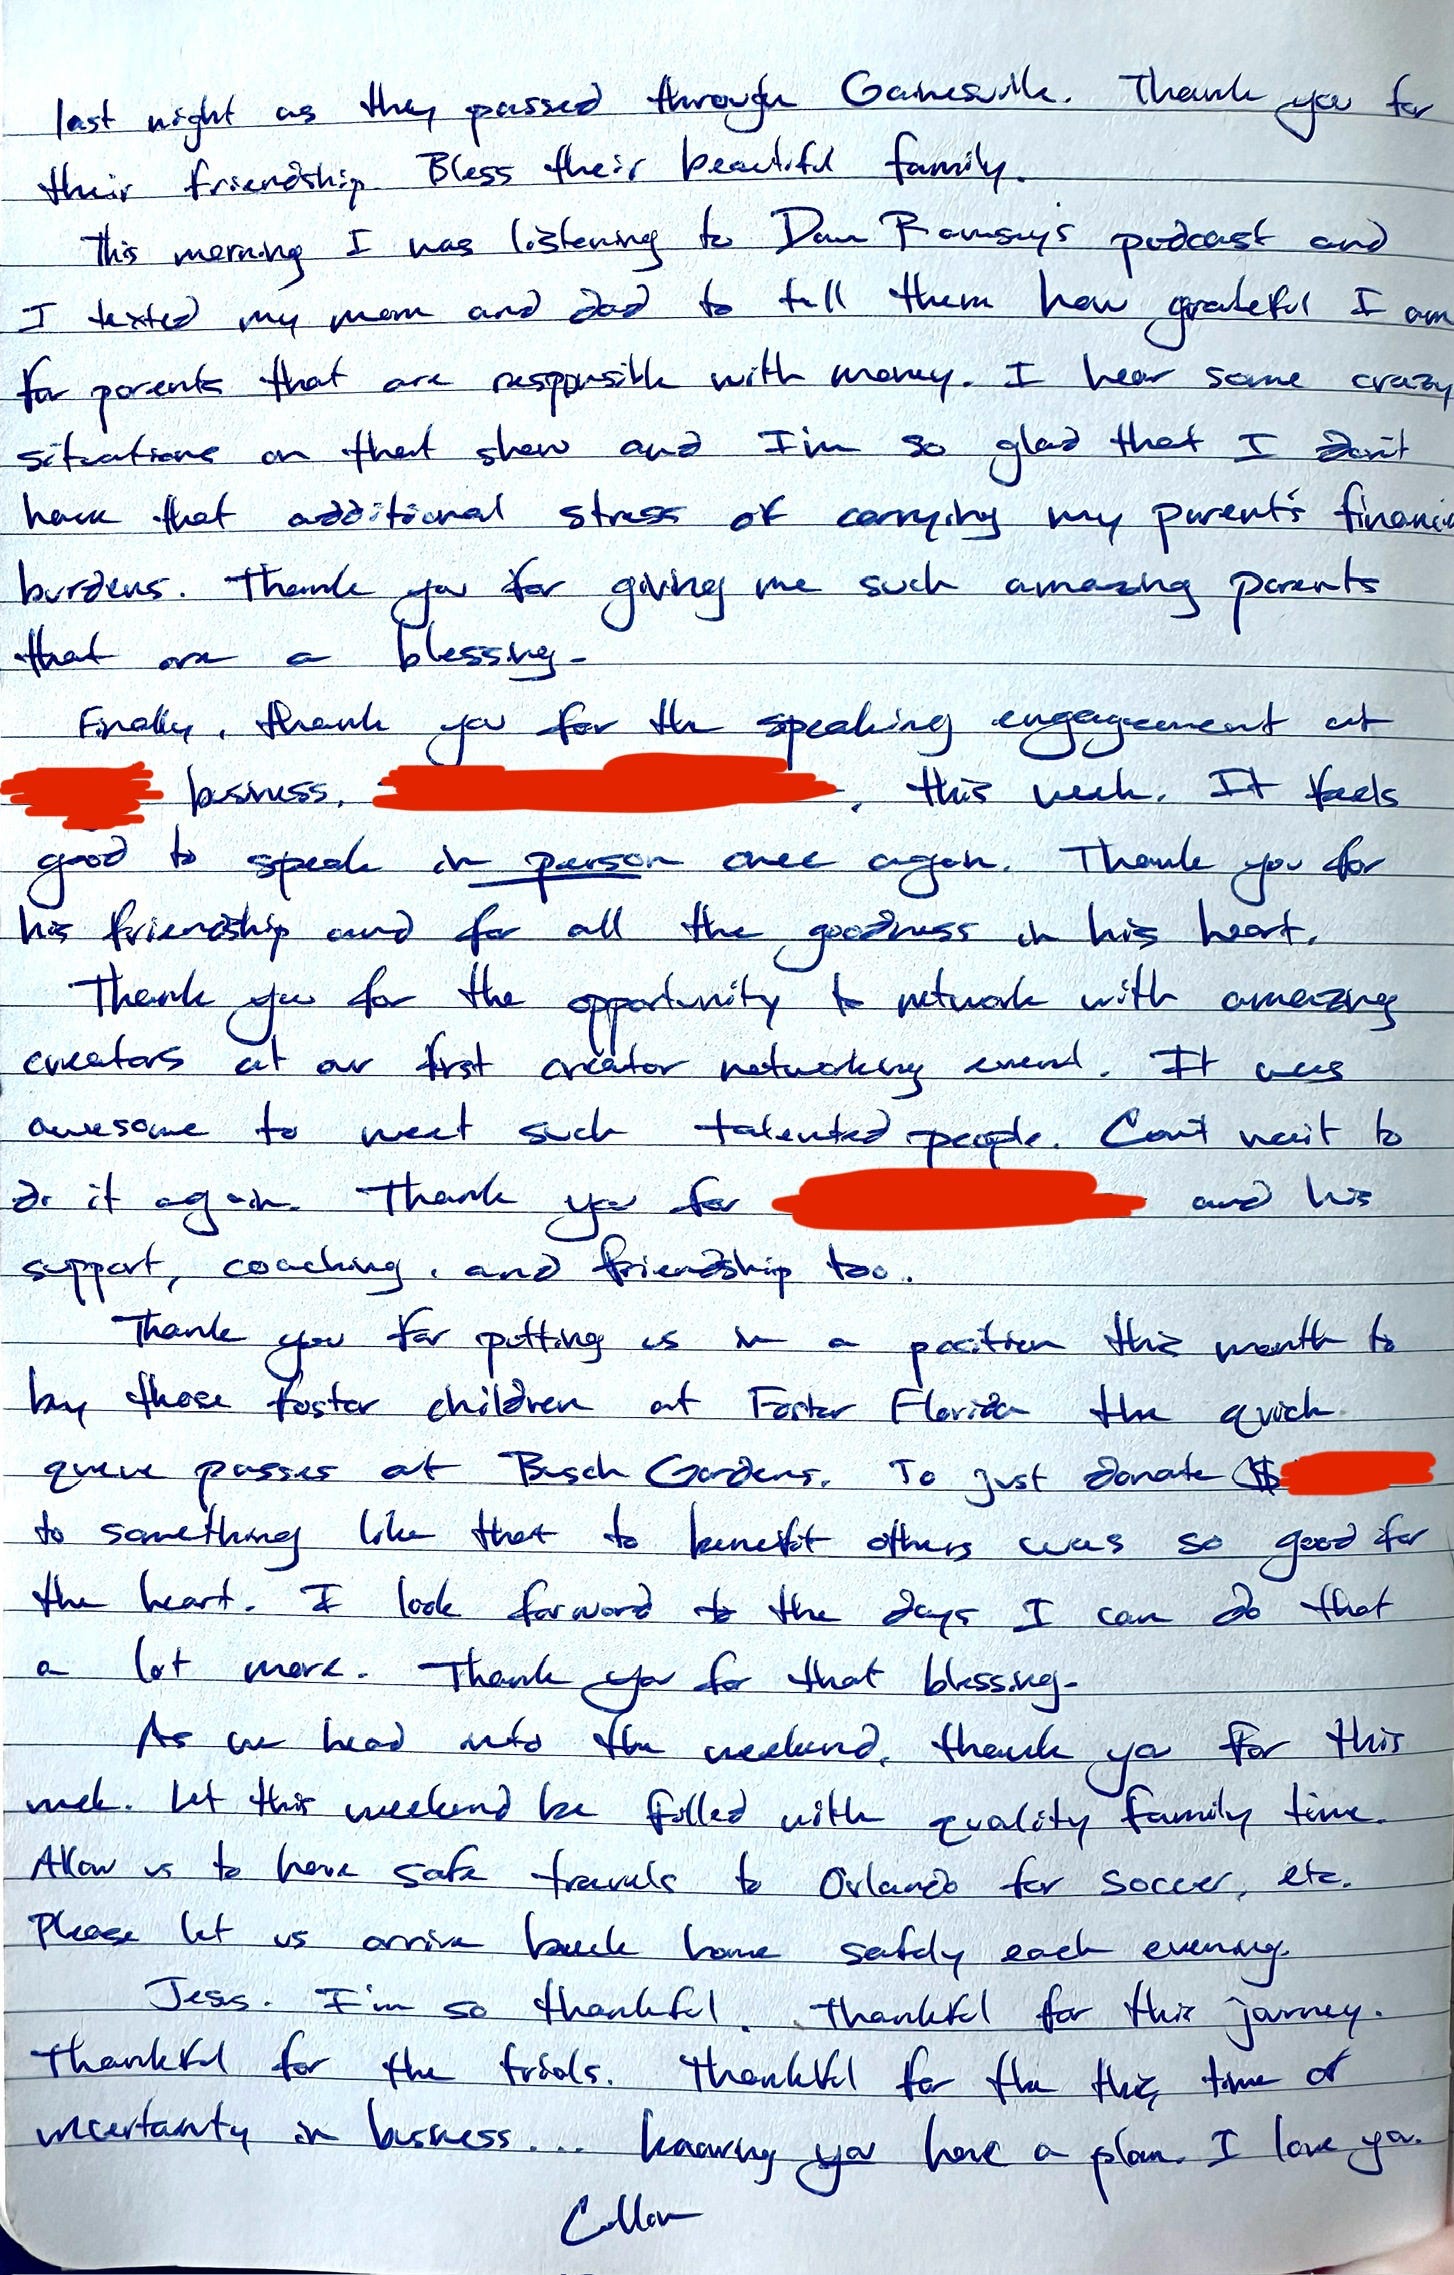 last night as they passed through Gainesville. Thank you for
their friendship. Bless their beautiful family.
This morning I was listening to Dave Ramsey's podcast and
I texted my mom and dad to tell them how grateful I am
for parents that are responsible with money. I hear some crazy
situations on that show and I'm so glad that I don't
have that additional stress of carrying my parent's financi
burdens. Thank you for giving me such amazing parents
that are a blessing.
Finally, thank you for the speaking engagement at
business, , this week. It feels
good to speak in person once again. Thank you for
his friendship and for all the goodness in his heart.
Thank you for the opportunity to network with amazing
creators at our first creator networking event. It was
awesome to meet such talented people. Can't wait to
do it again. Thank you for and his
support, coaching, and friendship too.
Thank you for putting us in a position this month to
buy those foster children at Foster Florida the quick
queue passes at Busch Gardens. To just donate $
to something like that to benefit others was so good for
the heart. I look forward to the days I can do that
a lot more. Thank you for that blessing.
As we head into the weekend, thank you for this
week. Let this weekend be filled with quality family time.
Allow us to have safe travels to Orlando for soccer, etc.
Please let us arrive back home safely each evening.
Jesus. I'm so thankful. Thankful for this journey.
Thankful for the trials. Thankful for the this time of
uncertainty in business.... knowing you have a plan. I love you.